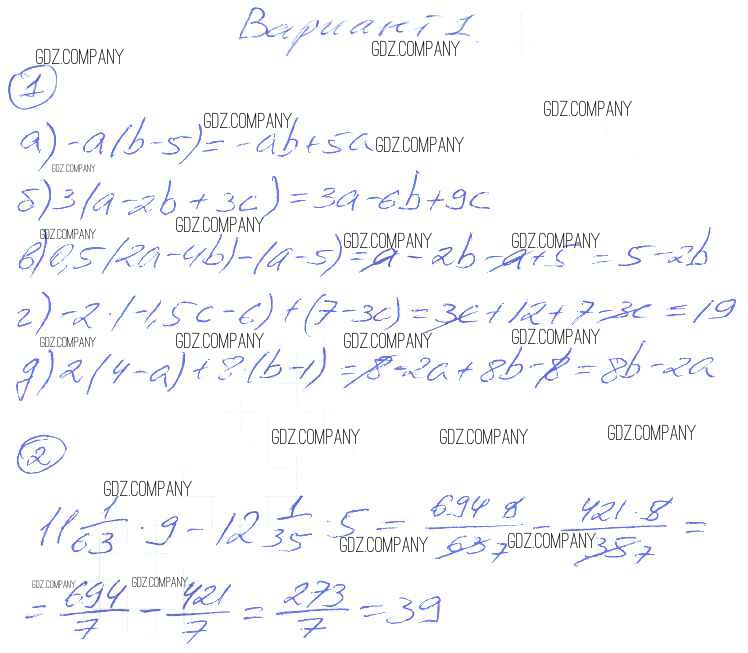 Вариант 1
GDZ.COMPANY GDZ.COMPANY
1
GDZ.COMPANY
GDZ.COMPANY
а) -a(b-5)=-ab+5a GDZ.COMPANY
GDZ.COMPANY
б) 3(a-2b+3c)=3a-6b+9c
GDZ.COMPANY GDZ.COMPANY GDZ.COMPANY GDZ.COMPANY
в) 0,5(2a-4b)-(a-5)=a-2b-a+5=5-2b
г) -2·(-1,5c-6)+(7-3c)=3c+12+7-3c=19
GDZ.COMPANY GDZ.COMPANY GDZ.COMPANY GDZ.COMPANY
д) 2(4-a)+8·(b-1)=8-2a+8b-8=8b-2a
GDZ.COMPANY GDZ.COMPANY GDZ.COMPANY
2
GDZ.COMPANY
11 1/63 · 9 - 12 1/35 · 5 = 694·9/63 7 - 421·5/35 7 =
GDZ.COMPANY GDZ.COMPANY
GDZ.COMPANY GDZ.COMPANY
= 694/7 - 421/7 = 273/7 = 39